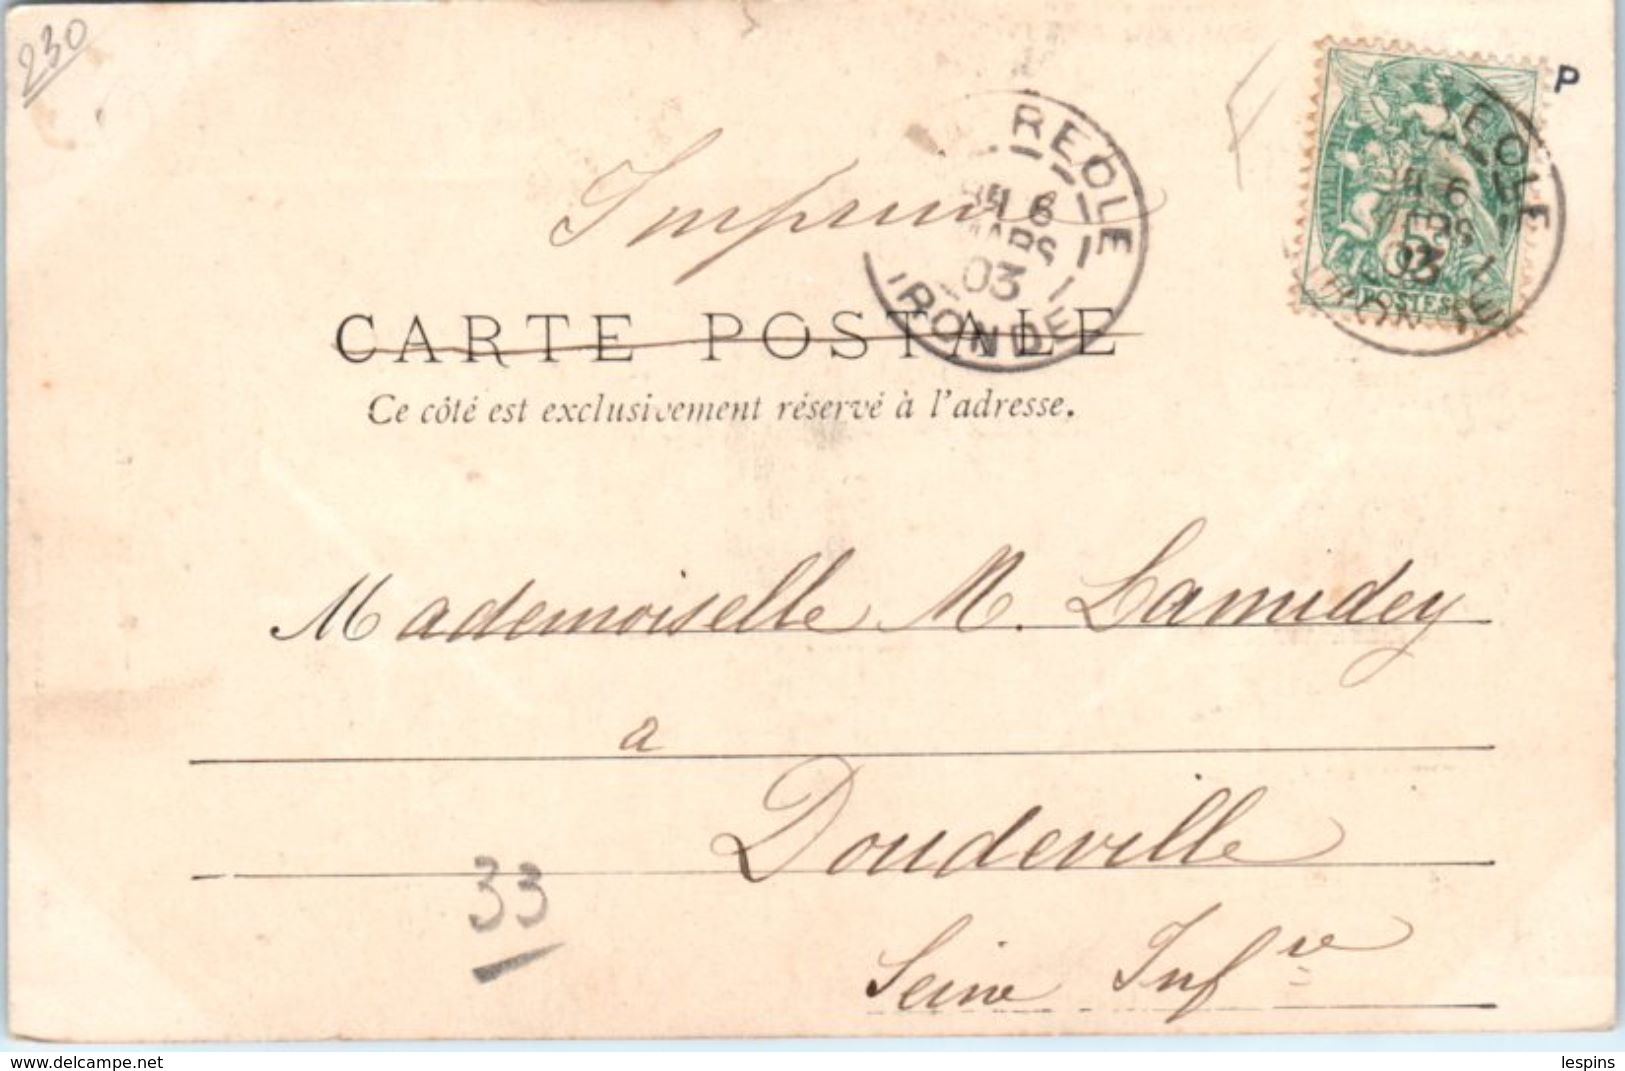 230
P
Imprimé
REOLE
6
MARS
03
GIRONDE
EOLE
6
03
POSTES
CARTE POSTALE
Ce côté est exclusivement réservé à l'adresse.
Mademoiselle M. Lamidey
a
Doudeville
33
Seine Infre
delcampe.net
lespins